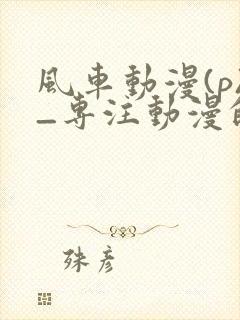 風車動漫(p
_專注動漫的
殊彥